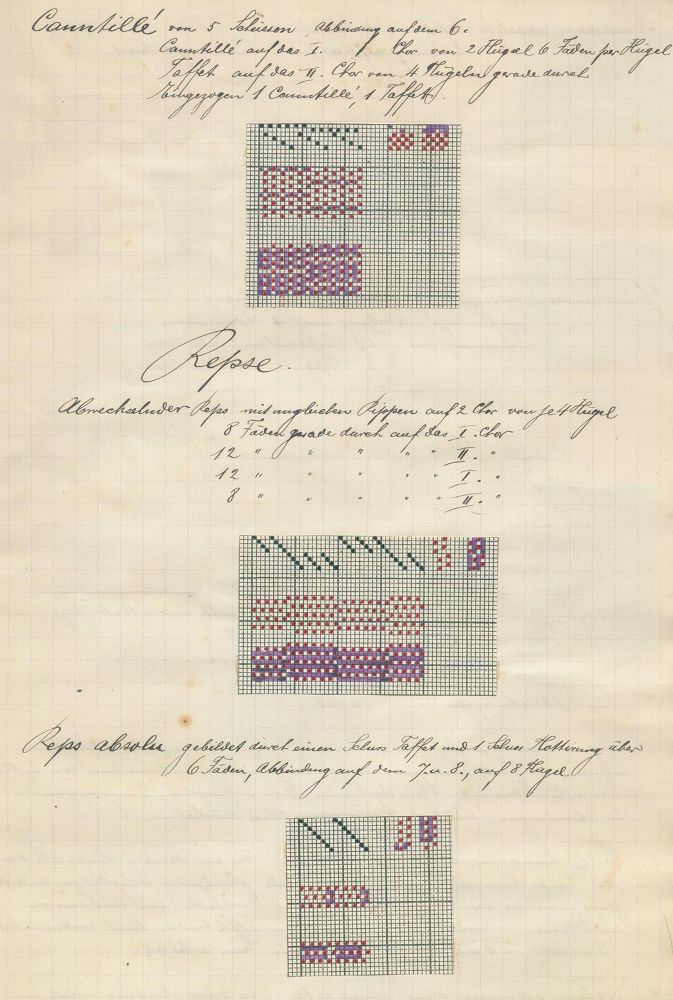 Canntillé von 5 Schüssen, Abbindung auf dem 6.
Canntillé auf das I. Chor von 2 Flügel 6 Fäden per Flügel
Taffet auf das II. Chor von 4 Flügeln gerade durch
Eingezogen 1 Canntillé, 1 Taffet.
Repse.
Abwechselnder Reps mit ungleichen Rippen auf 2 Chor von je 4 Flügel
8 Fäden gerade durch auf das I. Chor
12 " " " " " II. "
12 " " " " " I. "
8 " " " " " II. "
Reps absolu gebildet durch einen Schuss Taffet und 1 Schuss Flottirung über
6 Fäden, Abbindung auf dem 7. u. 8., auf 8 Flügel